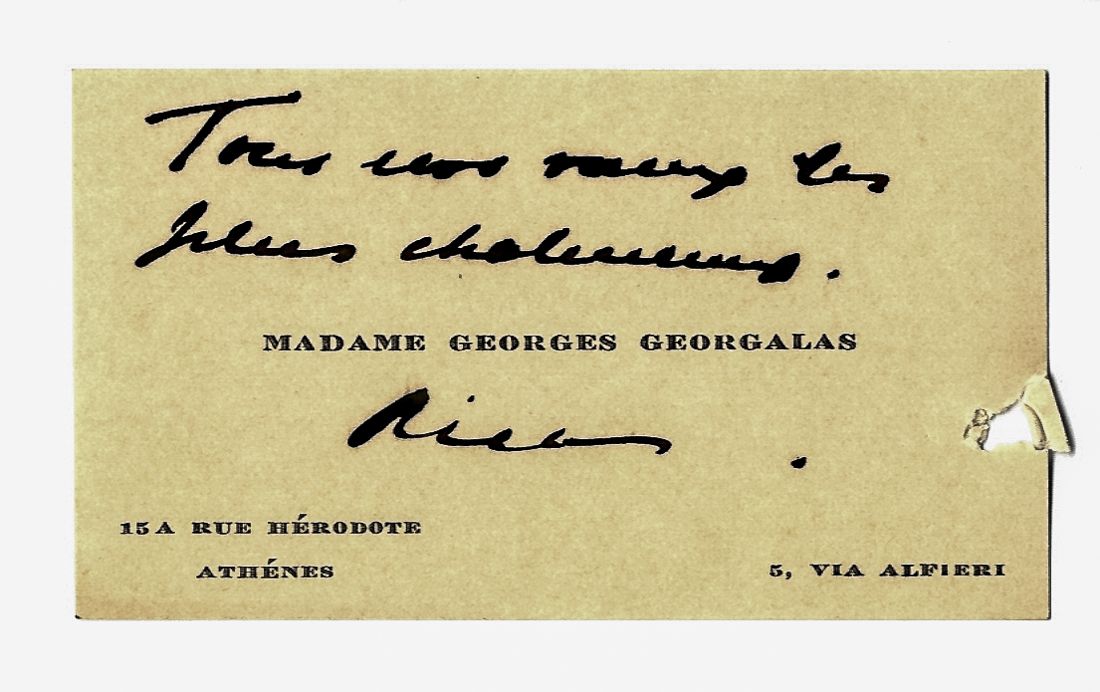 Tous nos vœux les
plus chaleureux.
MADAME GEORGES GEORGALAS
15A RUE HÉRODOTE
ATHÉNES
5, VIA ALFIERI